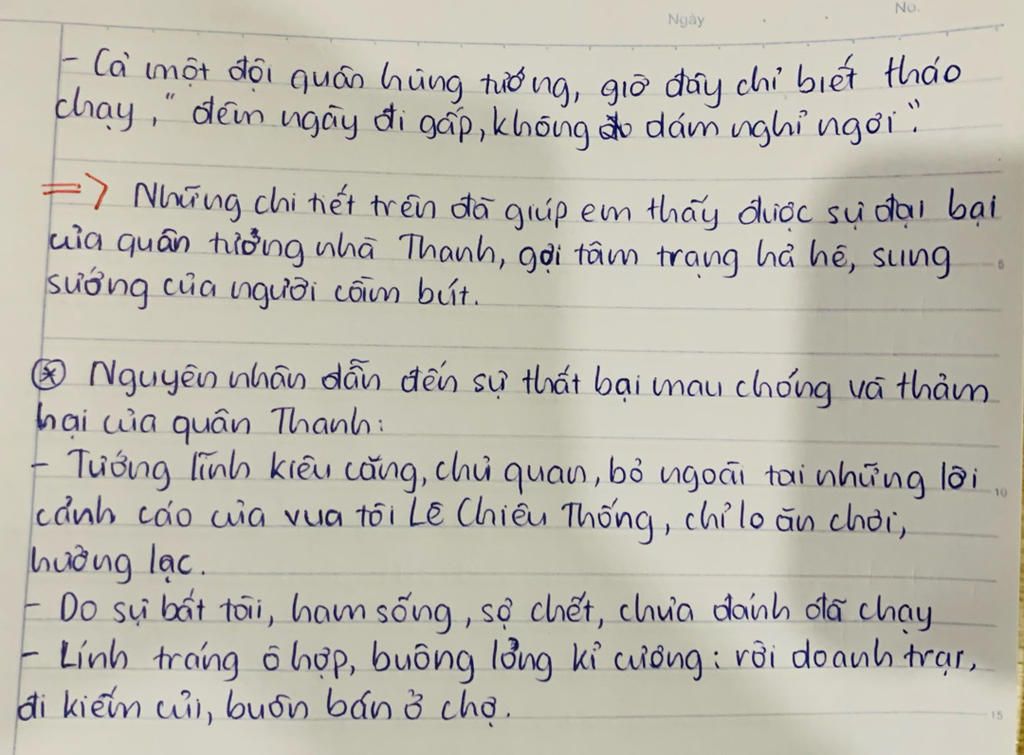 Ngày
No.
- Cả một đội quân hùng tướng, giờ đây chỉ biết tháo
chạy, "đêm ngày đi gấp, không dám nghỉ ngơi".
=> Những chi tiết trên đã giúp em thấy được sự đại bại
của quân tướng nhà Thanh, gợi tâm trạng hả hê, sung
sướng của người cầm bút.
* Nguyên nhân dẫn đến sự thất bại mau chóng và thảm
hại của quân Thanh:
- Tướng lĩnh kiêu căng, chủ quan, bỏ ngoài tai những lời
cảnh cáo của vua tôi Lê Chiêu Thống, chỉ lo ăn chơi,
hưởng lạc.
- Do sự bất tài, ham sống, sợ chết, chưa đánh đã chạy
- Lính tráng ô hợp, buông lỏng kỉ cương: rời doanh trại,
đi kiếm củi, buôn bán ở chợ.
5
10
15